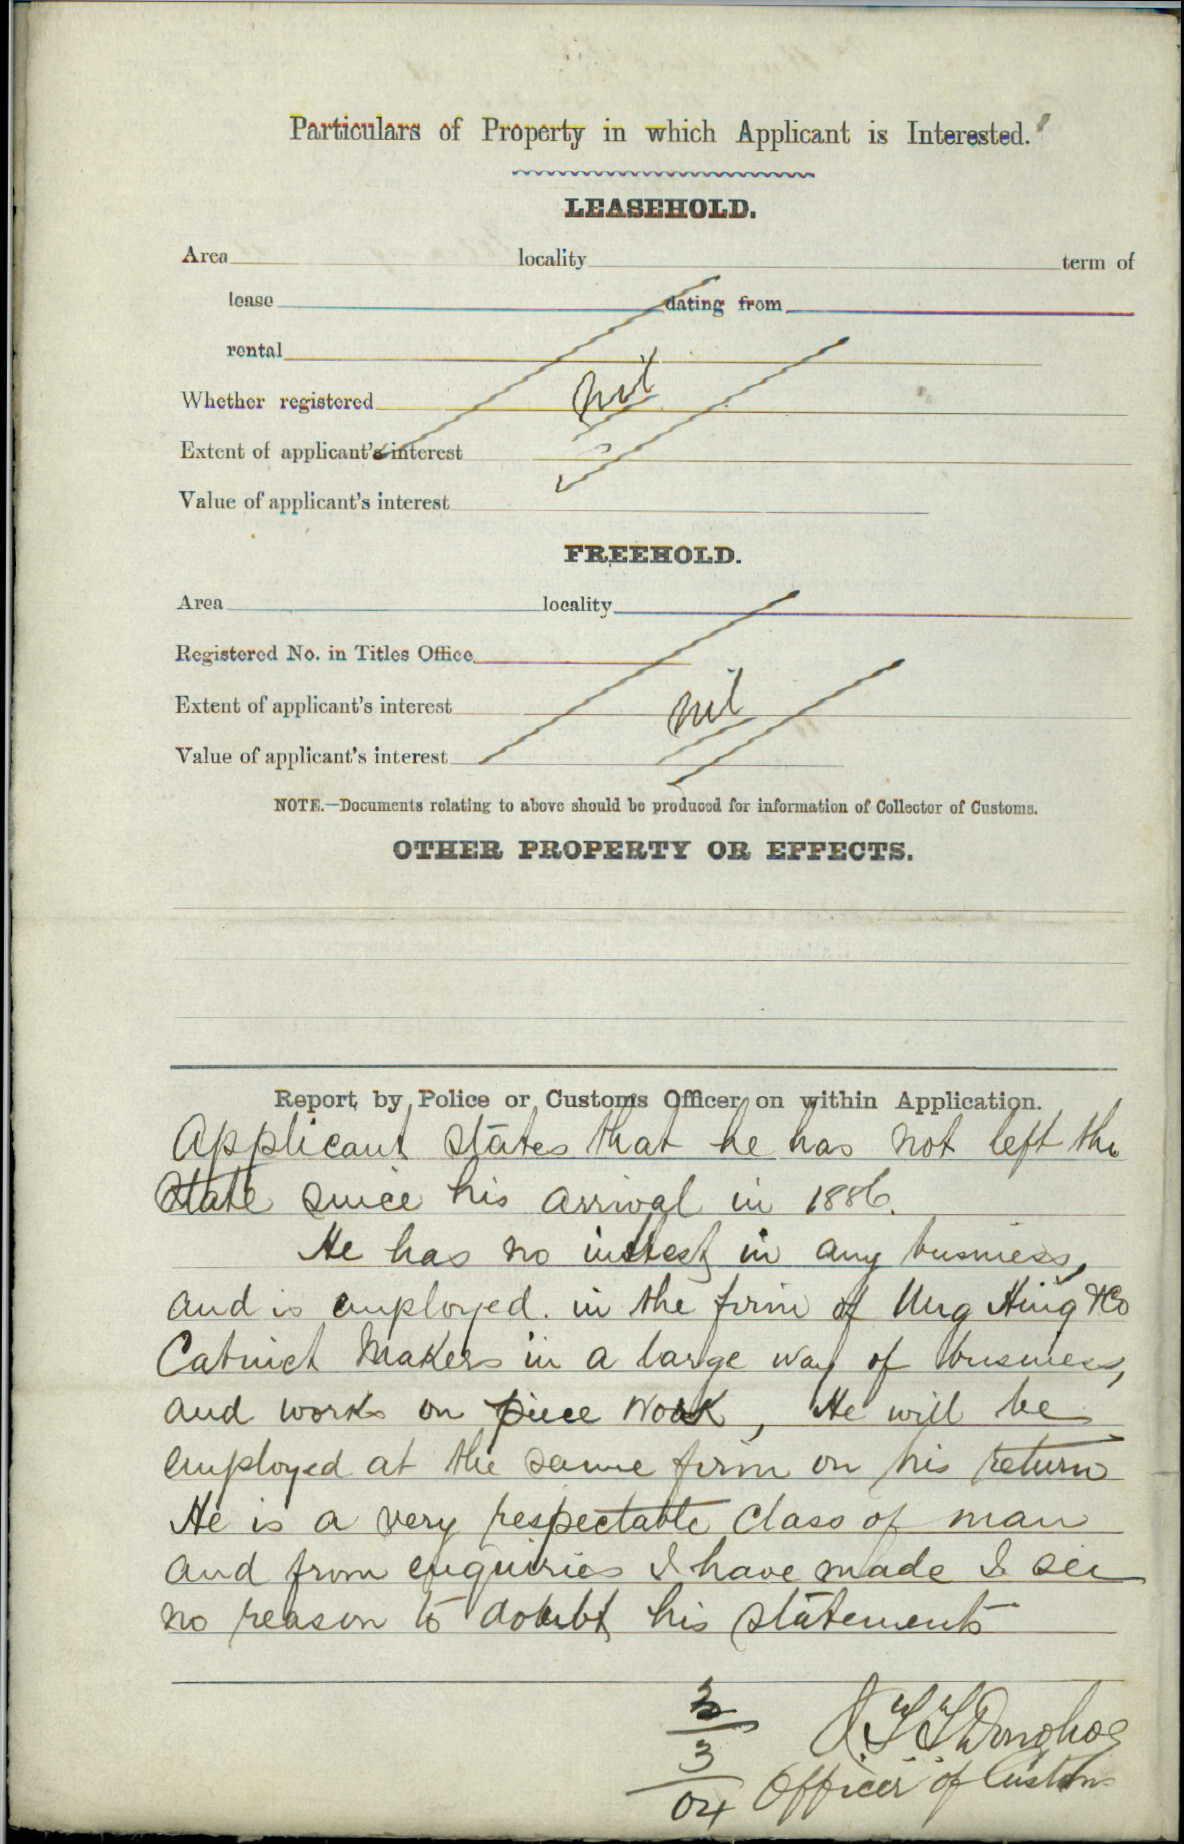 Particulars of Property in which Applicant is Interested.
LEASEHOLD.
Area locality term of
lease dating from
rental
nil
Whether registered
Extent of applicant's interest
Value of applicant's interest
FREEHOLD.
Area locality
Registered No. in Titles Office
nil
Extent of applicant's interest
Value of applicant's interest
NOTE.—Documents relating to above should be produced for information of Collector of Customs.
OTHER PROPERTY OR EFFECTS.
Report by Police or Customs Officer on within Application.
Applicant states that he has not left the
State since his arrival in 1886.
He has no interest in any business,
and is employed. in the firm of Ung Hing & Co
Cabinet Makers in a large way of business,
and works on piece work, He will be
employed at the same firm on his return
He is a very respectable class of man
and from enquiries I have made I see
no reason to doubt his statements
3
04
Donohoe
Officer of Customs